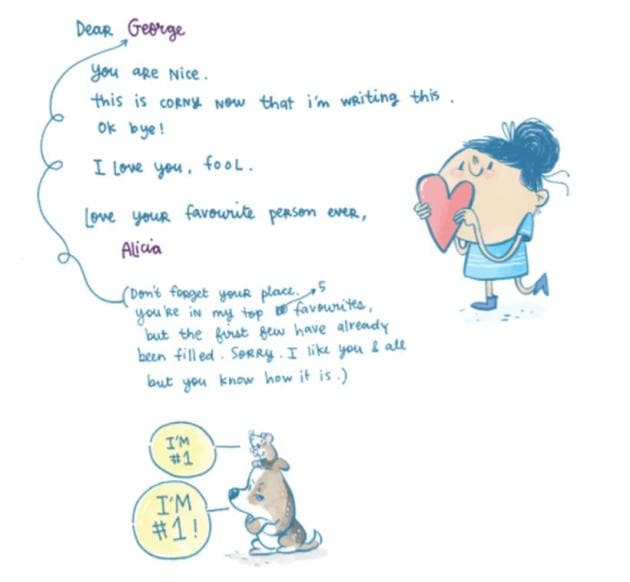 Dear George
You are nice.
this is corny now that i'm writing this.
Ok bye!
I love you, fool.
Love your favourite person ever,
Alicia
(Don't forget your place.
you're in my top 5 favourites,
but the first few have already
been filled. Sorry. I like you & all
but you know how it is.)
I'M
#1
I'M
#1!